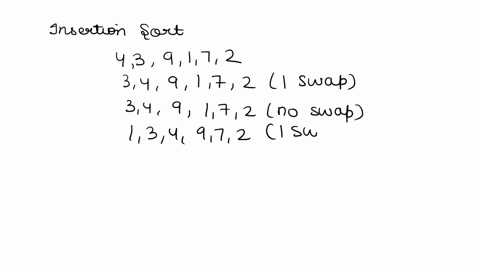 Insertion Sort
4,3, 9,1,7,2
3,4, 9, 1,7, 2 (1 swap)
3,4, 9, 1,7,2 (no swap)
1,3,4, 9,7,2 (1 sw